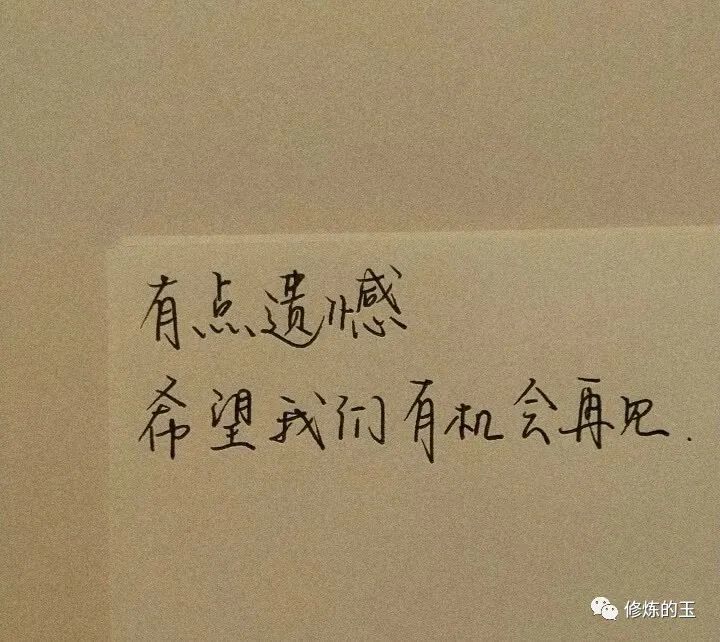 有点遗憾
希望我们有机会再见.
修炼的玉